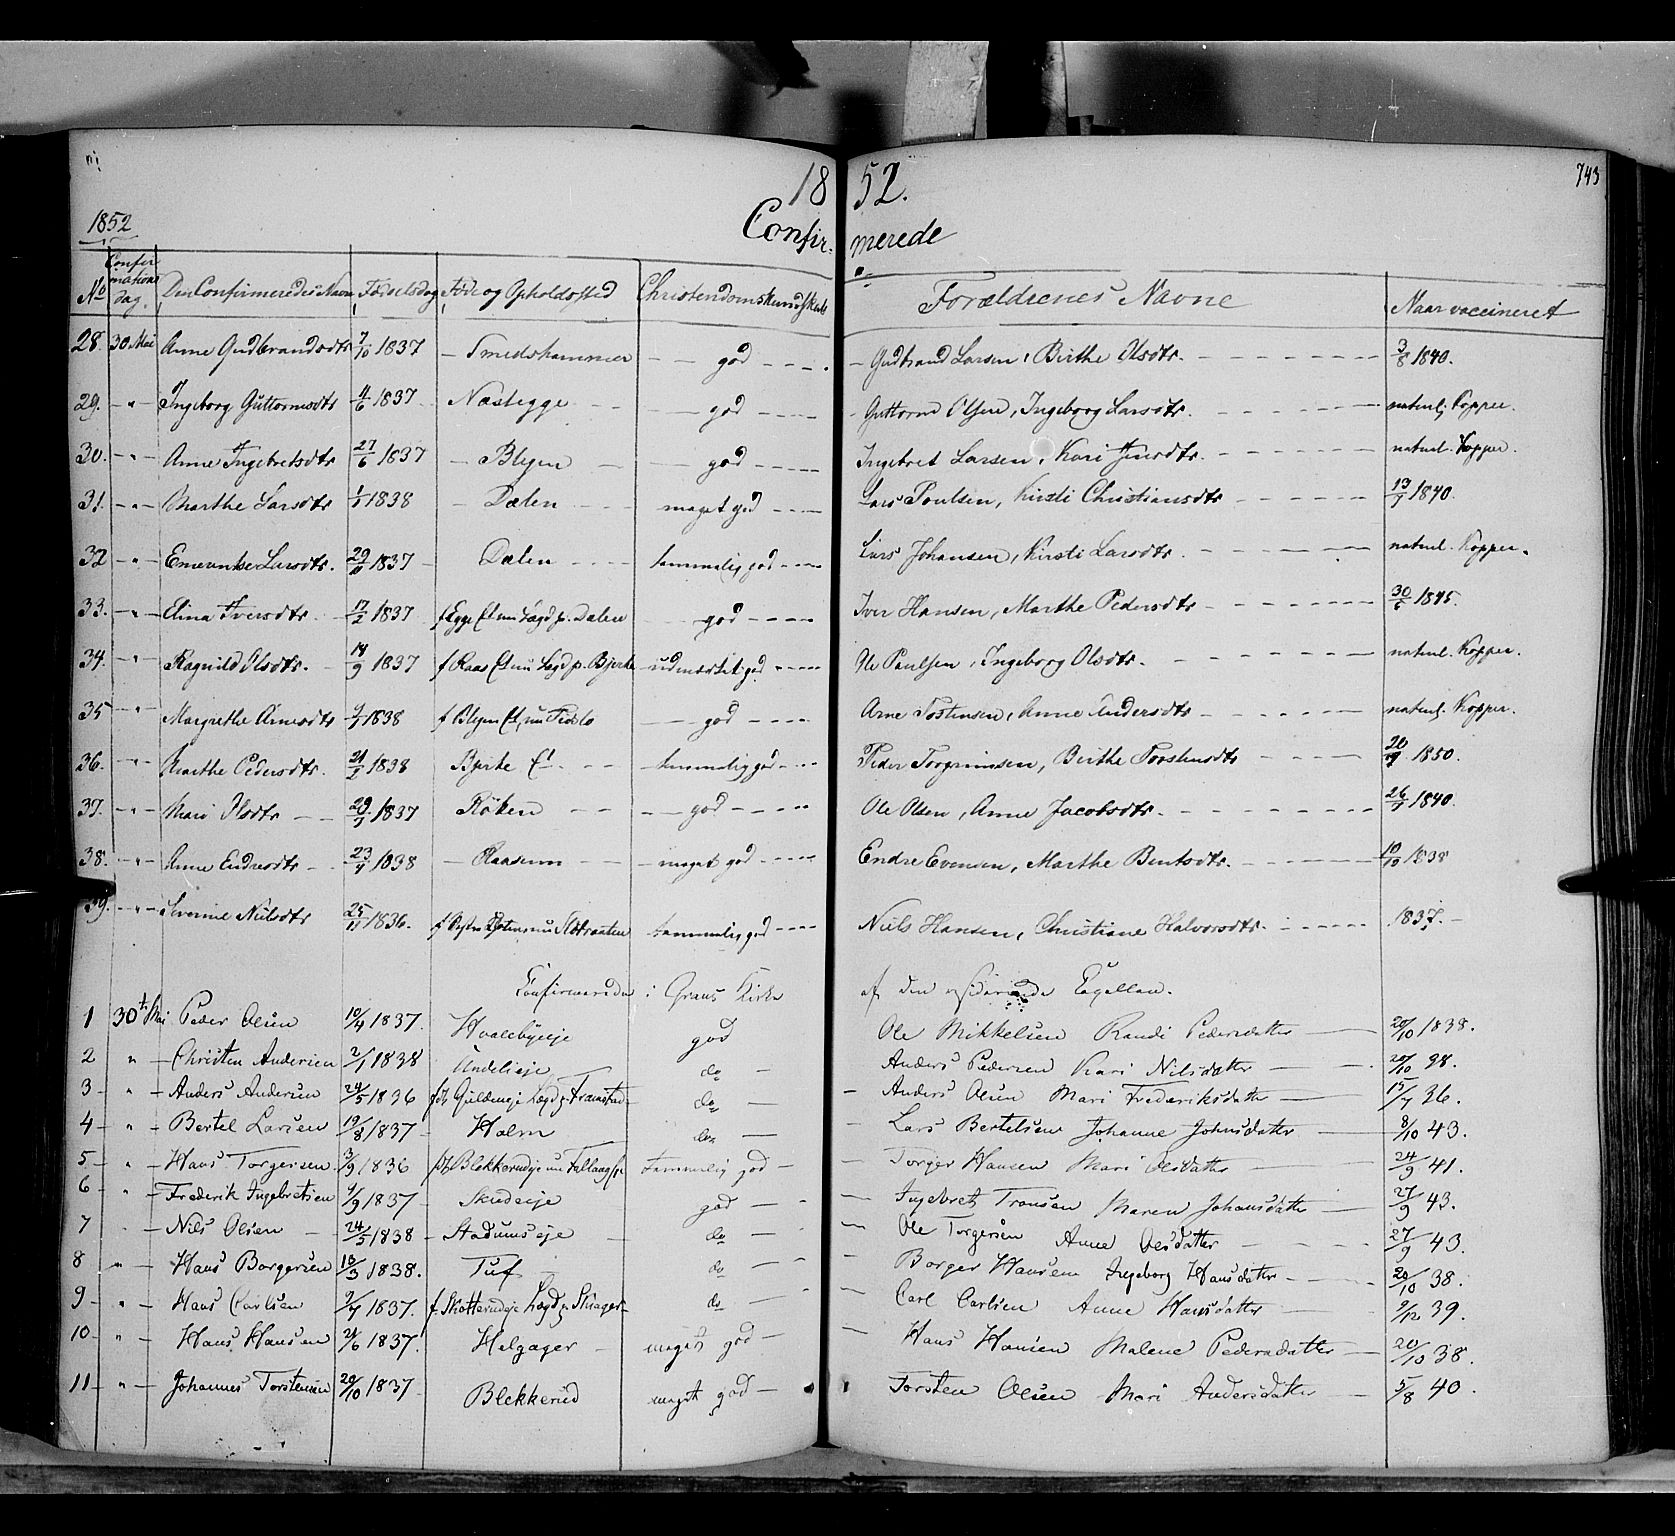 18 52. 743
1852
Confir- merede
No Confirmations dag. Den Confirmeredes Navn Fødselsdag Føde og Opholdssted Christendomskundskab Forældrenes Navne Naar vaccineret
28. 30 Mai Anne Gudbrandsdtr 7/10 1837 Smedshammer god Gudbrand Larsen, Birthe Olsdtr. 3/8 1840.
29. " Ingeborg Guttormsdtr 4/6 1837 Næsegge god Guttorm Olsen, Ingeborg Larsdtr. naturl. Kopper.
30. " Anne Ingebretsdtr 27/6 1837 Blyen god Ingebret Larsen, Kari Jensdtr. naturl. Kopper.
31. " Marthe Larsdtr 1838 Dælen meget god Lars Poulsen, Kirsti Christiansdtr 1840.
32 " Larsdtr. 29/11 1837 Dælen temmelig god Lars Johansen, Kirsti Larsdtr. naturl. Kopper.
33. " Elina Iversdtr 17/2 1837 f Egge Ct nu Lægd p. Dælen god Iver Hansen, Marthe Pedersdtr 1845.
34. " Ragnild Olsdtr. 14/9 1837 f Raas Ct nu Lægd p. Bjerke udmærket god Ole Paulsen, Ingeborg Olsdtr. naturl. Kopper.
35 " Margrethe Arnesdtr 1838 f Blyen Ct, nu god Arne Tostensen, Anne Andersdtr naturl. Kopper.
36. " Marthe Pedersdtr. 1838 Bjerke Ct temmelig god Peder Torgrimsen, Birthe Torstensdtr 1850.
37. " Mari Olsdtr 1837 Røken god Ole Olsen, Anne Jacobsdtr. 1840.
38. " Anne Endresdtr 1838 Raasum meget god Endre Evensen, Marthe Bentsdtr. 10/10 1838
39. " Severine Nielsdtr 25/11 1836. temmelig god Niels Hansen, Christiane Halvorsdtr. 1837.
Confirmerede i Grans Kirke af den residerende Capellan.
1 30te Mai Peder Olsen 10/4 1837. Hvalebyeje god Ole Mikkelsen Randi Pedersdatter 20/10 1838.
2 " Christen Andersen 2/1 1838 do Anders Pedersen Kari Nilsdatter 20/10 38.
3 " Anders Andersen 24/5 1836 do Anders Olsen Mari Frederiksdatter 36.
4 " Bertel Larsen 19/8 1837 Holm do Lars Bertelsen Johanne Johnsdatter 8/10 43.
5 " Hans Torgersen 3/9 1836 temmelig god Torger Hansen Mari Olsdatter 24/9 41.
6 " Frederik Ingebretsen 1837 Skudeeje god Ingebret Tronsen Maren Johansdatter 27/9 43.
7 " Nils Olsen 24/5 1838 Stadumseje do Ole Torgersen Anne Olsdatter 27/9 43.
8 " Hans Borgersen 18/3 1838. Tuf do Borger Hansen Ingeborg Hansdatter 20/10 38.
9 " Hans Carlsen 1837. do Carl Carlsen Anne Hansdatter 9/12 39.
10 " Hans Hansen 21/6 1837. Helgager meget god Hans Hansen Malene Pedersdatter 20/10 38.
11 " Johannes Torstensen 20/10 1837 Blekkerud meget god Torsten Olsen Mari Andersdatter 5/8 40.